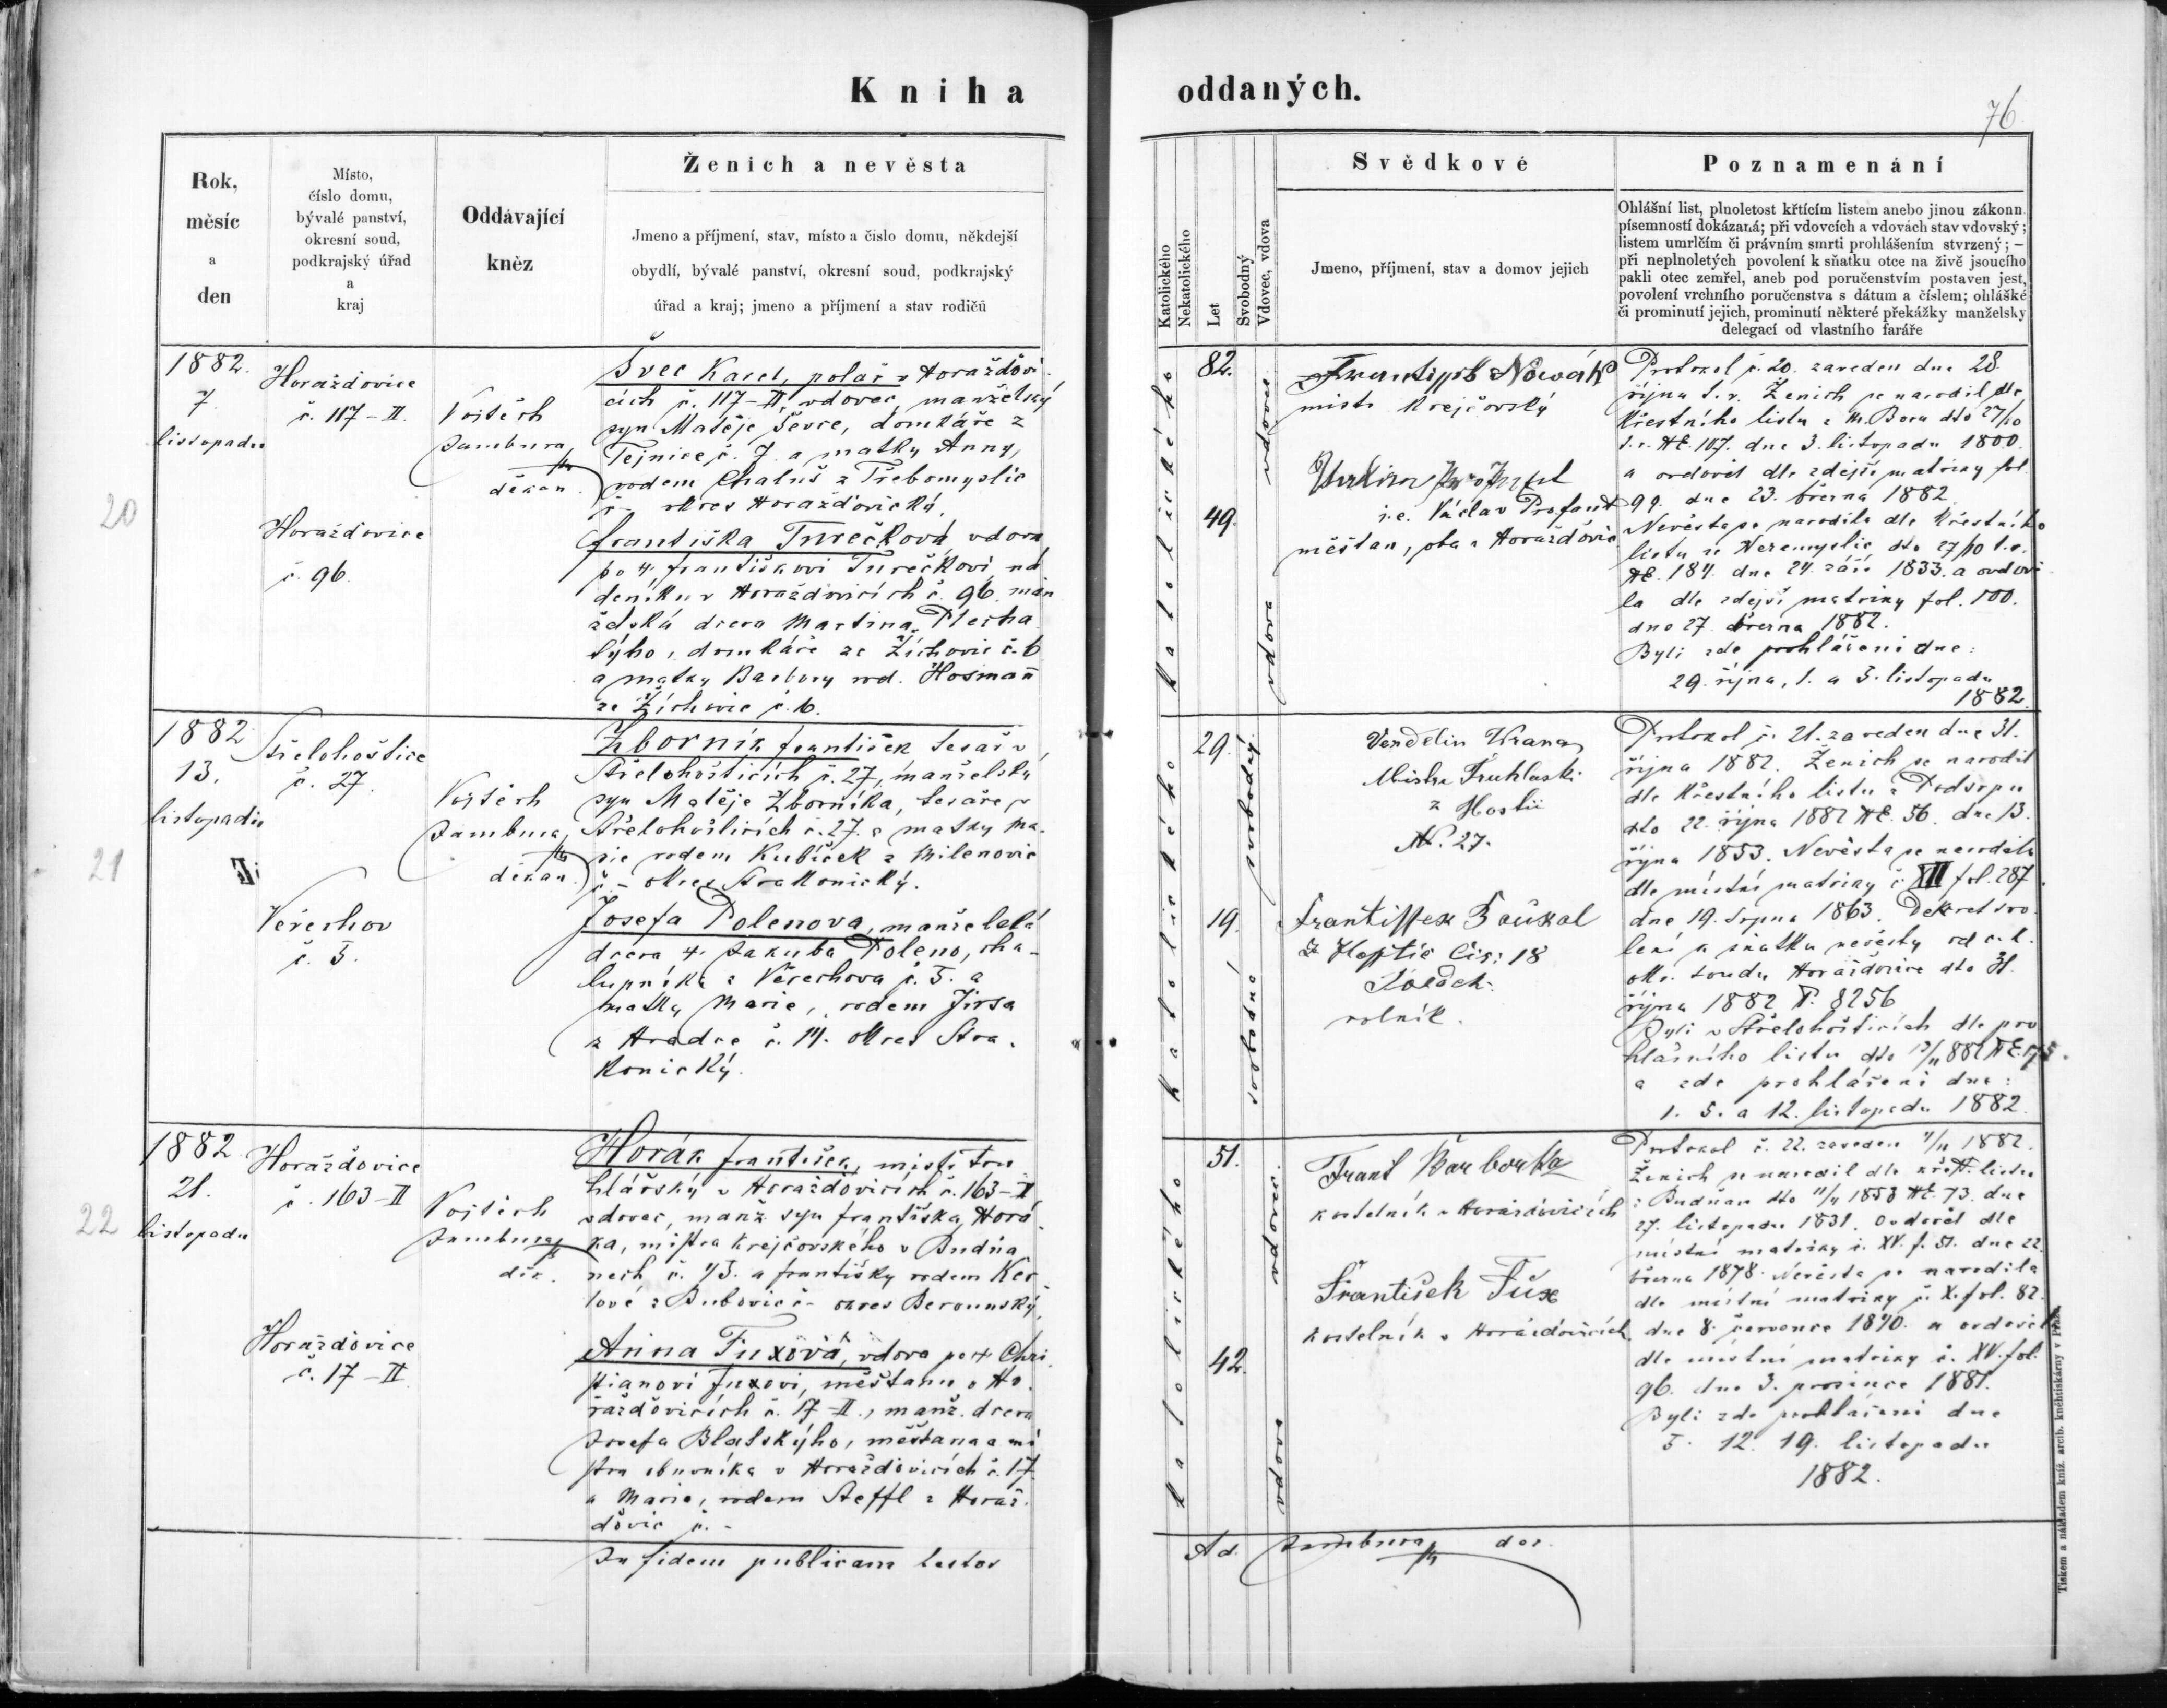 Kniha oddaných.
76
Rok,
měsíc
a
den
Místo,
číslo domu,
bývalé panství,
okresní soud,
podkrajský úřad
a
kraj
Oddávající
kněz
Ženich a nevěsta
Jmeno a příjmení, stav, místo a číslo domu, někdejší
obydlí, bývalé panství, okresní soud, podkrajský
úřad a kraj; jmeno a příjmení a stav rodičů
Katolického
Nekatolického
Let
Svobodný
Vdovec, vdova
Svědkové
Jmeno, příjmení, stav a domov jejich
Poznamenání
Ohlášní list, plnoletost křtícím listem anebo jinou zákonn.
písemností dokázaná; při vdovcích a vdovách stav vdovský;
listem umrlčím či právním smrti prohlášením stvrzený; —
při neplnoletých povolení k sňatku otce na živě jsoucího
pakli otec zemřel, aneb pod poručenstvím postaven jest,
povolení vrchního poručenstva s dátum a číslem; ohlášké
či prominutí jejich, prominutí některé překážky manželsky
delegací od vlastního faráře
20
1882.
7.
listopadu
Horažďovice
č. 117-II.
Vojtěch
Jambura
děkan
Horažďovice
č. 96.
Švec Karel, polař v Horažďovi-
cích č. 117-II, vdovec, manželský
syn Matěje Ševce, domkáře z
Tejnice č. 7. a matky Anny,
rodem Chaluš z Třebomyslic
č - okres Horažďovický.
Františka Turečková vdova
po † Františkovi Turečkovi, ná
deníku v Horažďovicích č. 96. man
želská dcera Martina Plecha
týho, domkáře ze Žichovic č. 6
a matky Barbory rod. Hosman̄
ze Žichovic č. 16.
katolického
82.
49.
vdovec
vdova
Frantissek Nowák
mistr krejčovský
i.e. Václav Profant
měšťan, oba z Horažďovic
Protokol č. 20. zaveden dne 28.
října t. r. Ženich se narodil dle
křestního listu z M. Boru dto 27/10
t. r. N.E. 107. dne 3. listopadu 1800.
a ovdověl dle zdejší matriky fol
99. dne 23. března 1882
Nevěsta se narodila dle křestního
listu ze Nezamyslic dto 27/10 t. r.
NE. 184. dne 24. září 1833. a ovdově
la dle zdejší matriky fol. 100.
dne 27. března 1882.
Byli zde prohlášeni dne:
29. října, 1. a 5. listopadu
1882.
21
1882
13.
listopadu
Střelohoštice
č. 27.
Vojtěch
Jambura,
děkan.
Veřechov
č. 5.
Zborník František tesař v
Střelohošticích č. 27, manželský
syn Matěje Zborníka, tesaře v
Střelohošticích č. 27. a matky Ma-
rie rodem Kubíček z Milenovic
č. - okres Strakonický.
Josefa Polenova, manželská
dcera † Jakuba Poleno, cha-
lupníka z Věrechova č. 5. a
matky Marie, rodem Jirsa
z Hradce č. 14. okres Stra-
konický.
katolického
29.
19.
svobodný
svobodná
Vendelin Wrana
Mistr Truhlaski
z Hostic
N. 27.
Frantissek Saukal
Z Hoštic Čis: 18
rolník.
Protokol č. 21. zaveden dne 31.
října 1882. Ženich se narodil
dle křestního listu z Podsrpu
dto 22. října 1882 NE. 56. dne 13.
října 1853. Nevěsta se narodila
dle místní matriky č. XIII fol. 287.
dne 19. srpna 1863. Dekret svo
lení k sňatku nevěsty od c. k.
okr. soudu Horažďovice dto 31.
října 1882 N. 8256
Byli v Střelohošticích dle pro
hlášního listu dto 13/11 882 NE. 175.
a zde prohlášeni dne:
1. 5. a 12. listopadu 1882.
22
1882
21.
listopadu
Horažďovice
č. 163-II
Vojtěch
Jambura
děk.
Horažďovice
č. 17-II
Horák František, mistr tru
hlářský v Horažďovicích č. 163-II
vdovec, manž. syn Františka Horá
ka, mistra krejčovského v Budňa
nech č. 73. a Františky rodem Ker
lové z Bubovic č - okres Berounský.
Anna Fuxová, vdova po † Chri
stianovi Fuxovi, měšťanu v Ho-
ražďovicích č. 17-II., manž. dcera
Josefa Blatskýho, měšťana a mi
stra obuvníka v Horažďovicích č. 17
a Marie, rodem Steffl z Horaž-
ďovic č. -
katolického
51.
42.
vdovec
vdova
Frant Barborka
kostelník v Horažďovicích
František Fux
kostelník v Horažďovicích
Protokol č. 22. zaveden 4/11 1882.
Ženich se narodil dle křest. listu
z Budňan dto 11/4 1858 NE. 73. dne
27. listopadu 1831. Ovdověl dle
místní matriky č. XV. f. 51. dne 22.
března 1878. Nevěsta se narodila
dle místní matriky č. X. fol. 82.
dne 8. července 1840. a ovdověla
dle místní matriky č. XV. fol.
96. dne 3. prosince 1881.
Byli zde prohlášeni dne
5. 12. 19. listopadu
1882.
In fidem publicam testor
Ad. Jambura dec.
Tiskem a nákladem kníž. arcib. kněhtiskárny v Praze.